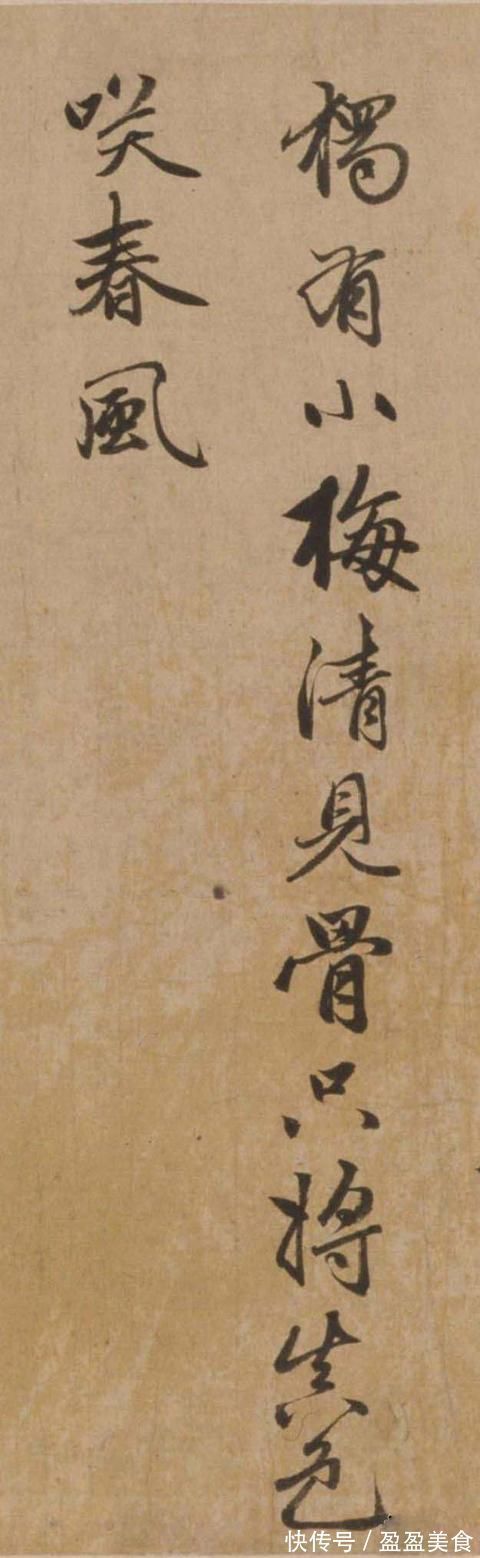 獨有小梅清見骨只將真色
咲春風
快传号/盈盈美食